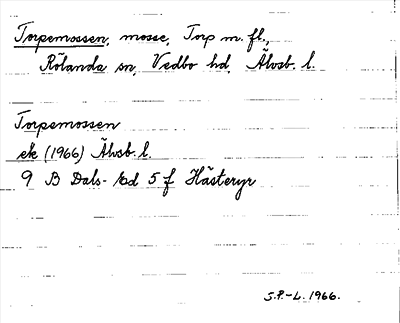 Torpemossen, mosse, Torp m. fl.,
Rölanda sn, Vedbo hd, Älvsb. l.
Torpemossen
ek (1966) Älvsb. l.
9 B Dals- Ed 5 f Hästeryr
S.P.-L. 1966.